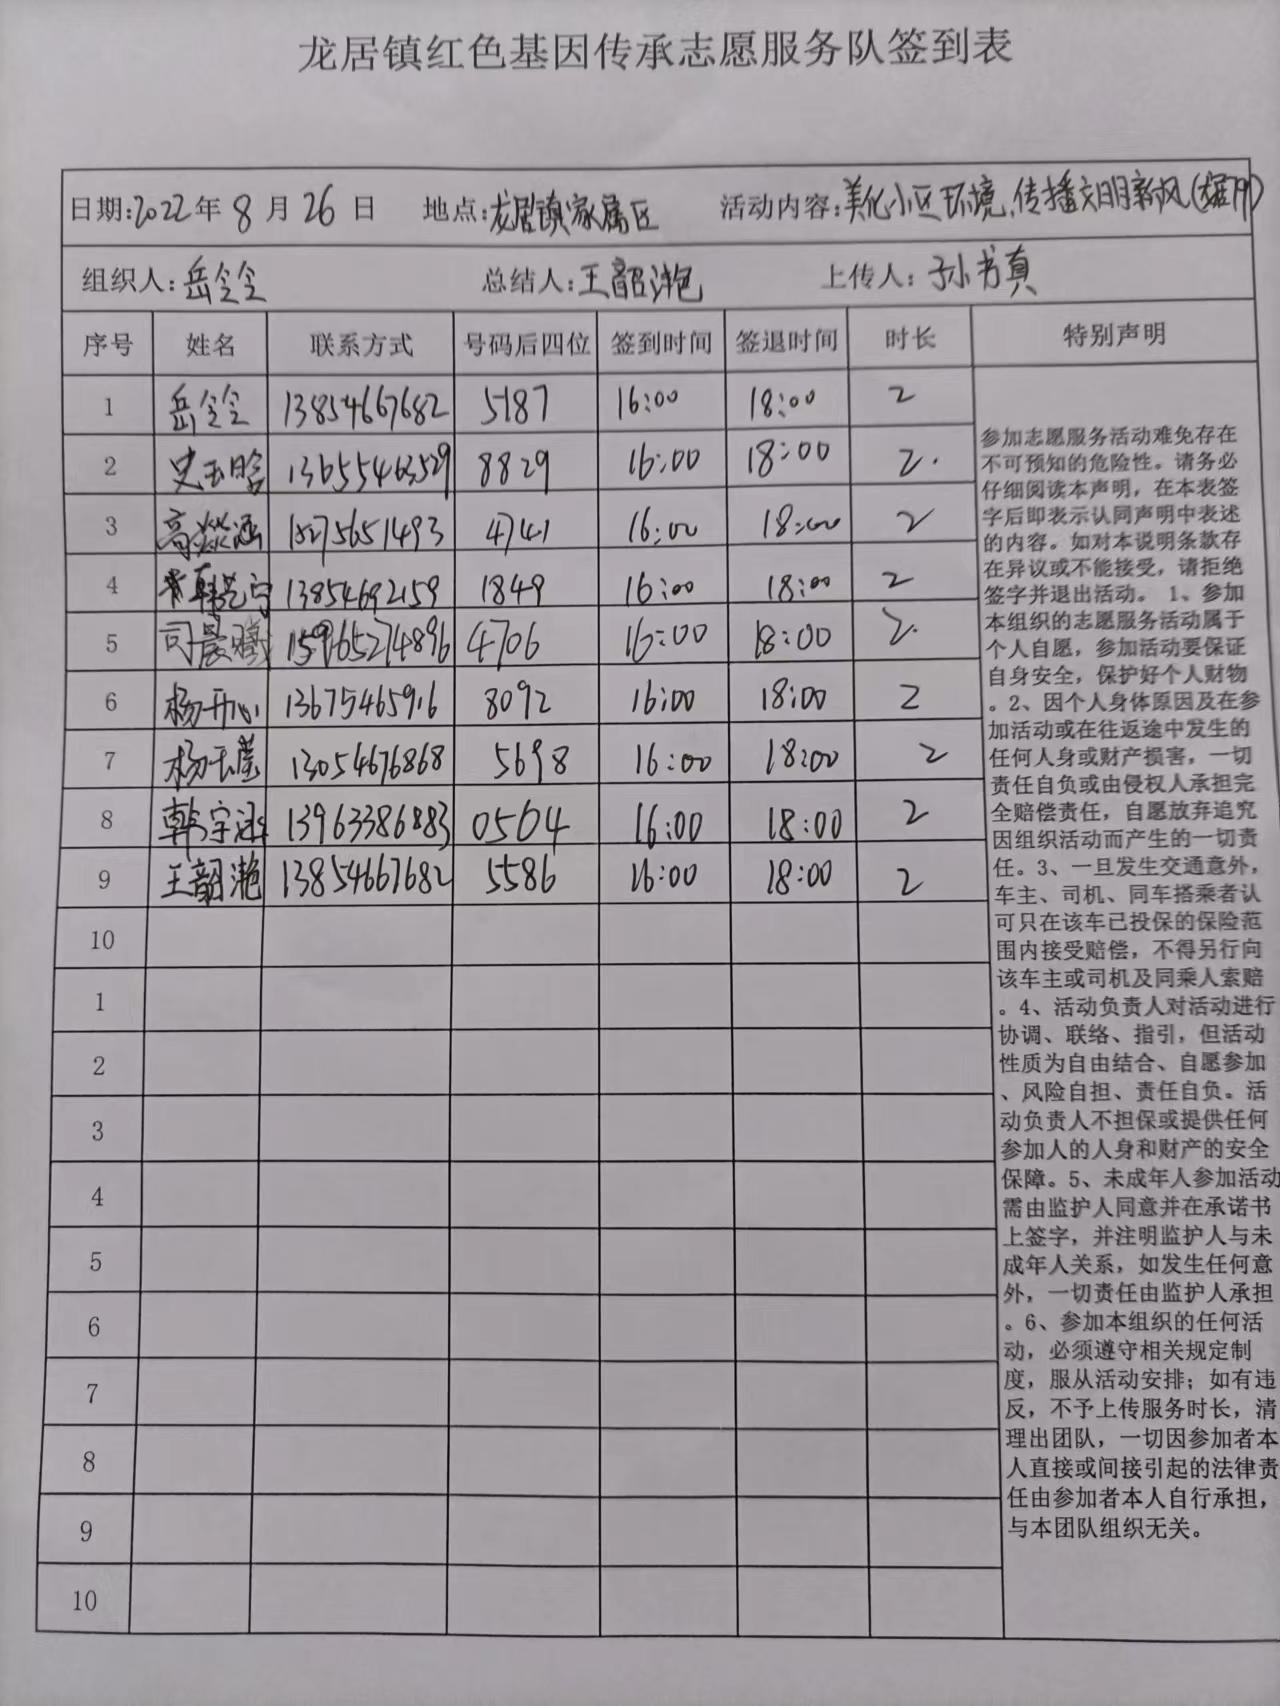 龙居镇红色基因传承志愿服务队签到表
日期:2022年8月26日 地点:龙居镇家属区 活动内容:美化小区环境,传播文明新风
组织人:岳令令 总结人:王韶滟 上传人:孙书真
序号 姓名 联系方式 号码后四位 签到时间 签退时间 时长 特别声明
1 岳令令 13854667682 5187 16:00 18:00 2
2 史玉晗 13655463529 8829 16:00 18:00 2.
3 高 涵 15275651493 4741 16:00 18:00 2
4 韩艺宁 13854692159 1849 16:00 18:00 2
5 司晨曦 15965274896 4706 16:00 18:00 2.
6 杨开心 13675465916 8092 16:00 18:00 2
7 杨玉莹 13054676868 5698 16:00 18:00 2
8 韩宇涵 13963386883 0504 16:00 18:00 2
9 王韶滟 13854667682 5586 16:00 18:00 2
10
1
2
3
4
5
6
7
8
9
10
参加志愿服务活动难免存在
不可预知的危险性。请务必
仔细阅读本声明，在本表签
字后即表示认同声明中表述
的内容。如对本说明条款存
在异议或不能接受，请拒绝
签字并退出活动。 1、参加
本组织的志愿服务活动属于
个人自愿，参加活动要保证
自身安全，保护好个人财物
。2、因个人身体原因及在参
加活动或在往返途中发生的
任何人身或财产损害，一切
责任自负或由侵权人承担完
全赔偿责任，自愿放弃追究
因组织活动而产生的一切责
任。3、一旦发生交通意外，
车主、司机、同车搭乘者认
可只在该车已投保的保险范
围内接受赔偿，不得另行向
该车主或司机及同乘人索赔
。4、活动负责人对活动进行
协调、联络、指引，但活动
性质为自由结合、自愿参加
、风险自担、责任自负。活
动负责人不担保或提供任何
参加人的人身和财产的安全
保障。5、未成年人参加活动
需由监护人同意并在承诺书
上签字，并注明监护人与未
成年人关系，如发生任何意
外，一切责任由监护人承担
。6、参加本组织的任何活
动，必须遵守相关规定制
度，服从活动安排；如有违
反，不予上传服务时长，清
理出团队，一切因参加者本
人直接或间接引起的法律责
任由参加者本人自行承担，
与本团队组织无关。